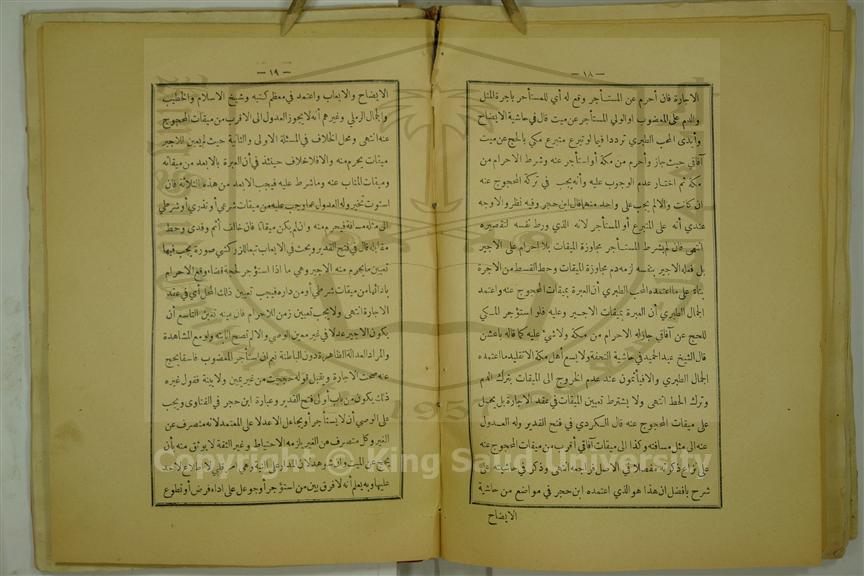 — ١٨ —
الاجارة فان أحرم عن المستأجر وقع له أي للمستأجر باجرة المثل
والدم على المعضوب او الولي المستأجر عن ميت قال في حاشية الايضاح
وأبدى المحب الطبري ترددا فيما لو تبرع متبرع مكي بالحج عن ميت
آفاقي حيث جاز وأحرم من مكة أو استأجر عنه وشرط الاحرام من
مكة ثم اختار عدم الوجوب عليه وأنه يجب في تركة المحجوج عنه
ان كانت والا لم يجب على واحد منهما قال ابن حجر وفيه نظر والاوجه
عندي أنه على المتبرع أو المستأجر لانه الذي ورط نفسه لتقصيره
انتهى فان لم يشرط المستأجر مجاوزة الميقات بلا احرام على الاجير
بل فعله الاجير بنفسه لزمه دم مجاوزة الميقات وحط القسط من الاجرة
بناء على ما اعتمده المحب الطبري أن العبرة بميقات المحجوج عنه واعتمد
الجمال الطبري أن العبرة بميقات الاجير وعليه فلو استؤجر المكي
للحج عن آفاقي جاز له الاحرام من مكة ولا شيء عليه كما قاله باعشن
قال الشيخ عبد الحميد في حاشية التحفة ولا يسع أهل مكة الا تقليد ما اعتمده
الجمال الطبري والا فيأثمون عند عدم الخروج الى الميقات بترك الدم
وترك الحط انتهى ولا يشترط تعيين الميقات في عقد الاجارة بل يحمل
على ميقات المحجوج عنه قال الكردي في فتح القدير وله العدول
عنه الى مثل مسافته وكذا الى ميقات آفاقي أقرب من ميقات المحجوج عنه
على نزاع ذكرته مفصلا في الاصل فراجعه انتهى وذكر في حاشيته على
شرح بافضل ان هذا هو الذي اعتمده ابن حجر في مواضع من حاشية
الايضاح
— ١٩ —
الايضاح والايعاب واعتمد في معظم كتبه وشيخ الاسلام والخطيب
والجمال الرملي وغيرهم أنه لا يجوز العدول الى الاقرب من ميقات المحجوج
عنه انتهى ومحل الخلاف في المسئلة الاولى والثانية حيث لم يعين للاجير
ميقات يحرم منه والا فلا خلاف حينئذ في أن العبرة بالابعد من ميقاته
وميقات المناب عنه وما شرط عليه فيجب الابعد من هذه الثلاثة فان
استوت تخير وله العدول عما وجب عليه من ميقات شرعي أو نذري أو شرطي
الى مثله مسافة فيحرم منه وان لم يكن ميقاتا فان خالف أثم وفدى وحط
مقابله قال في فتح القدير وبحث في الايعاب تبعا للزركشي صورة يجب فيها
تعيين ما يحرم منه الاجير وهي ما اذا استؤجر لحجة قضاء وقع الاحرام
بادائها من ميقات شرطي أو من داره فيجب تعيين ذلك المحل أي في عقد
الاجارة انتهى ولا يجب تعيين زمن للاحرام فان عينه تعين التاسع أن
يكون الاجير عدلا في غير معين الوصي والا لم تصح انابته ولو مع المشاهدة
والمراد العدالة الظاهرة دون الباطنة نعم ان استأجر المعضوب فاسقا يحج
عنه صحت الاجارة ويقبل قوله حججت من غير يمين ولا بينة فقول غيره
ذلك يكون من باب أولى فتح القدير وعبارة ابن حجر في الفتاوى ويجب
على الوصي أن لا يستأجر أو يجاعل الا عدلا على المعتمد لانه متصرف عن
الغير وكل متصرف عن الغير يلزمه الاحتياط وغير الثقة لا يوثق منه بأن
يحج عن الميت وان شوهد لان المدار على النية وهي امر قلبي لا اطلاع لاحد
عليها وبه يعلم أنه لا فرق بين من استؤجر أو جوعل على اداء فرض أو تطوع
Copyright © King Saud University
1957